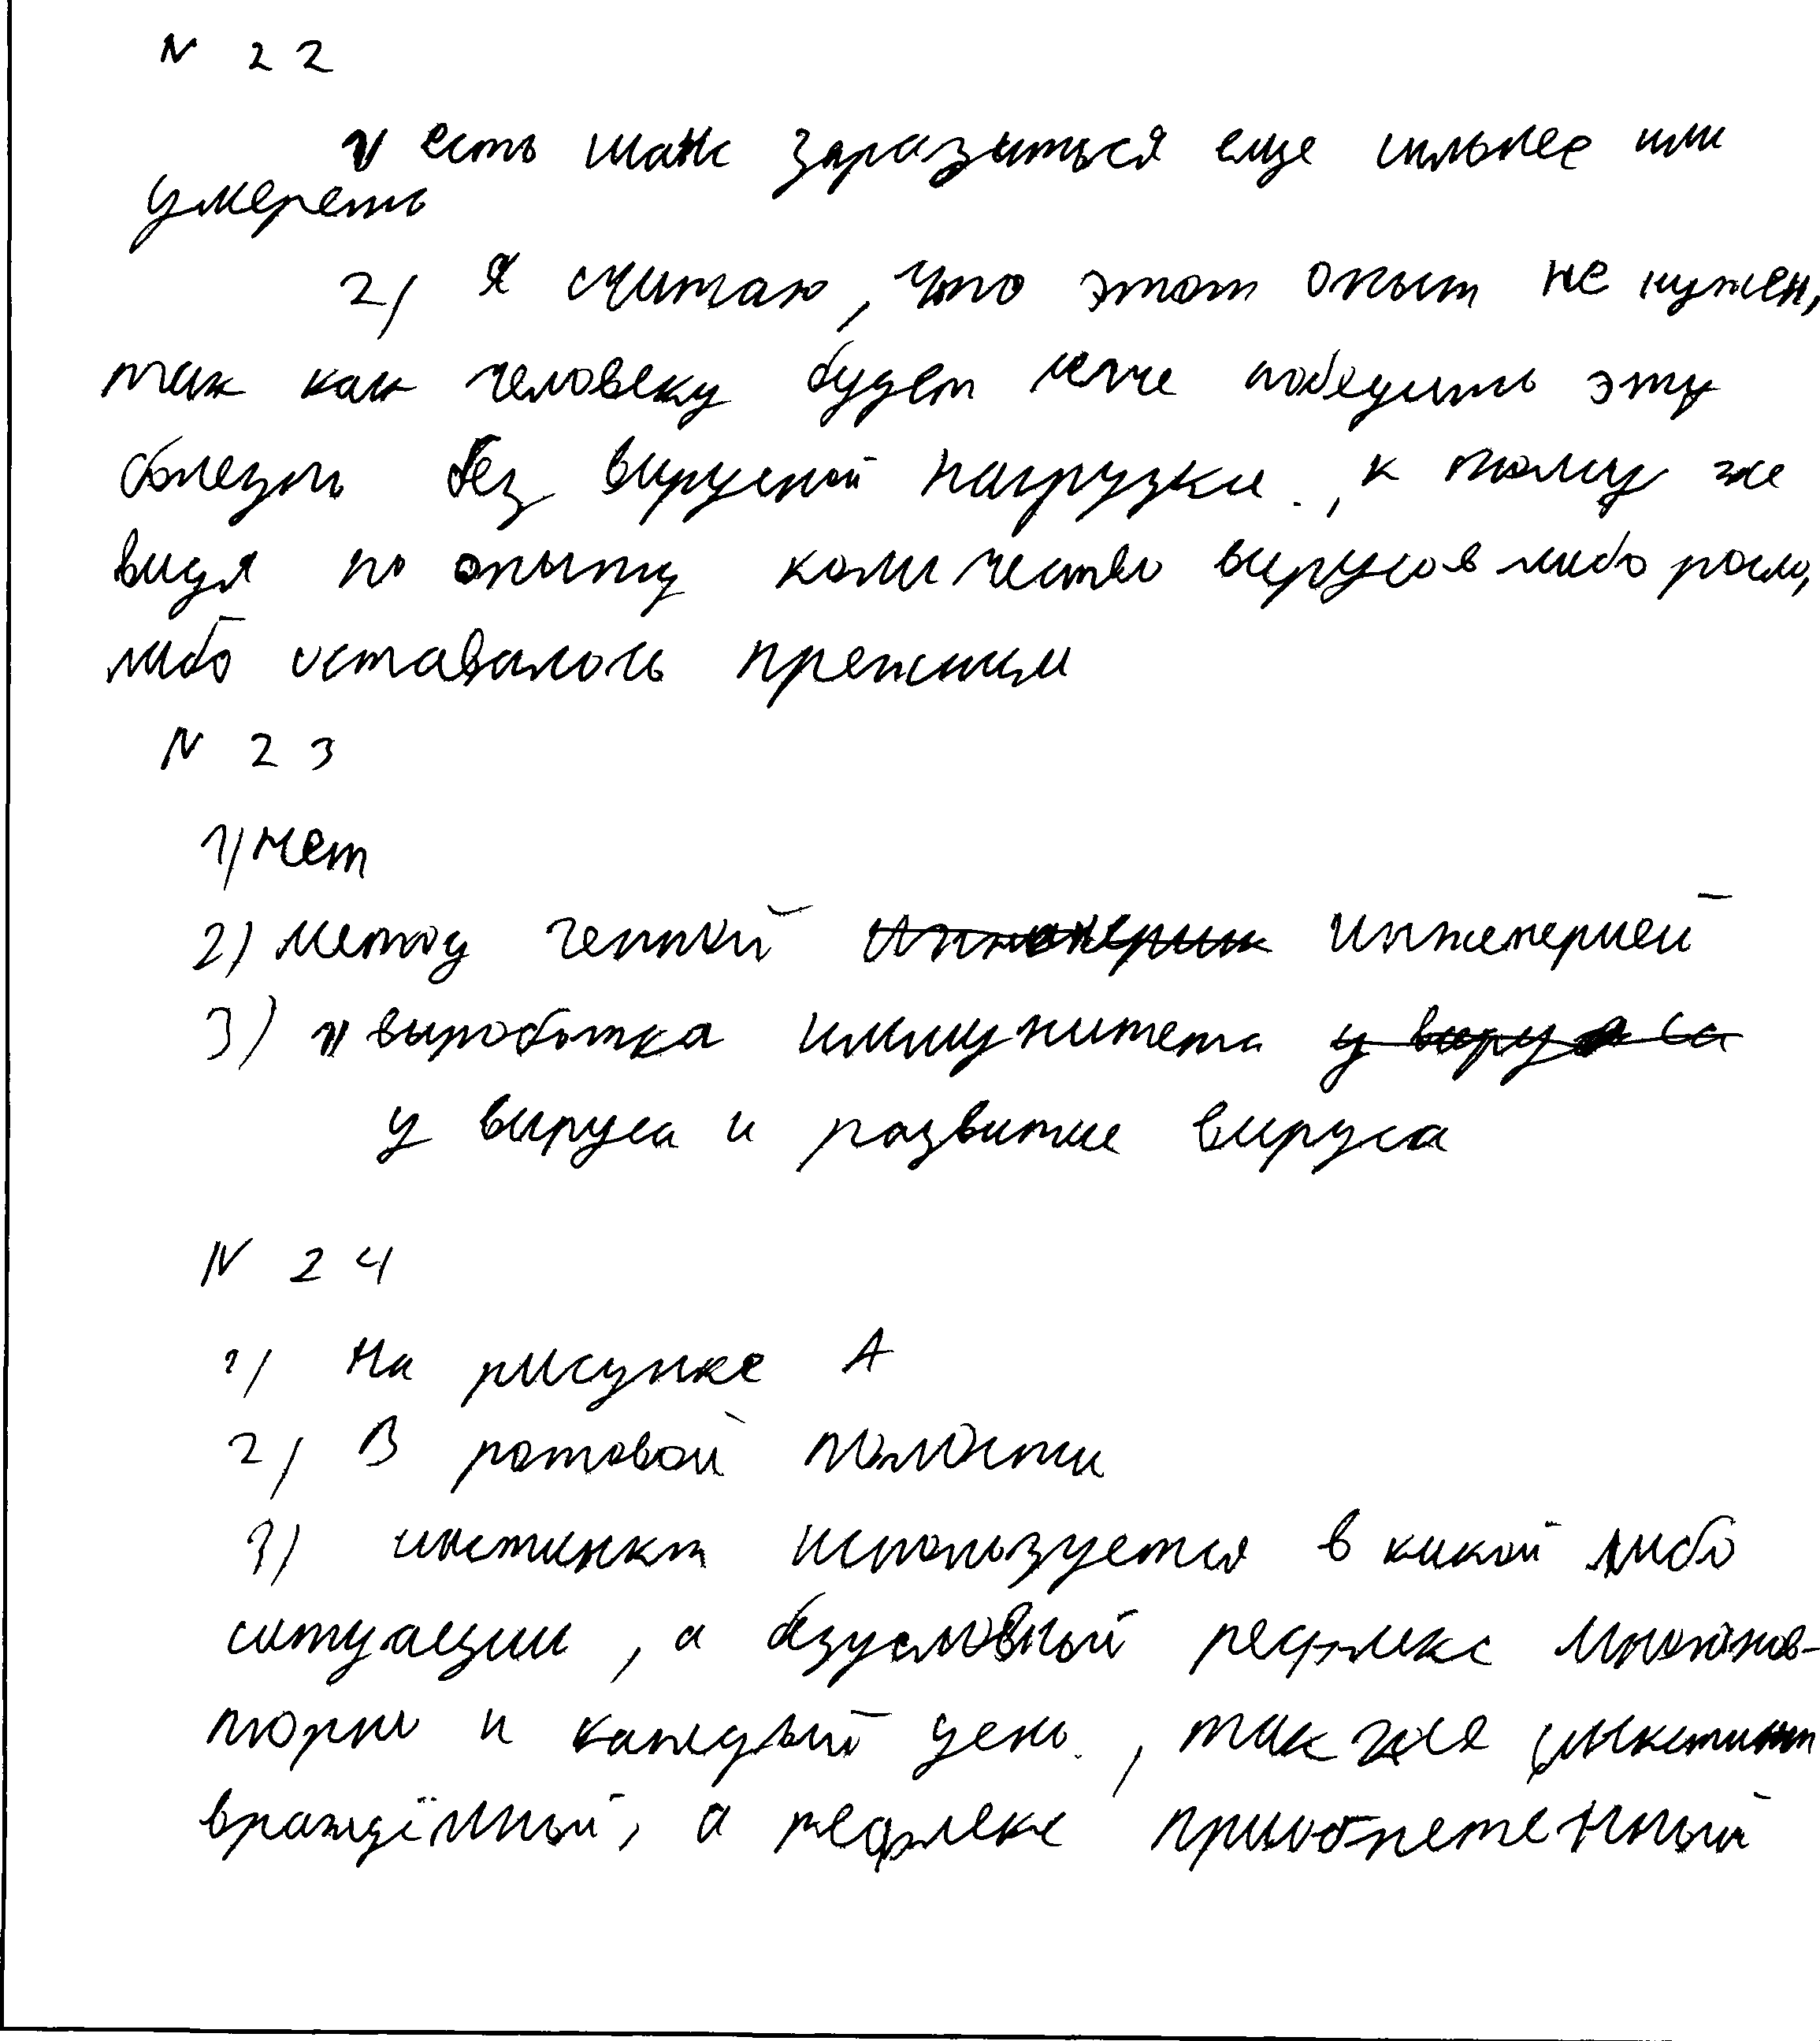 N 22
1) есть шанс заразиться еще сильнее или
умереть
2) Я считаю, что этот опыт не нужен,
так как человеку будет легче победить эту
болезнь без вирусной нагрузки, к тому же
видя по опыту количество вирусов либо росло,
либо оставалось прежним
N 23
1) нет
2) метод генной инженерией
3) выработка иммунитета
у вируса и развитие вируса
N 24
1) На рисунке А
2) В ротовой полости
3) инстинкт используется в какой либо
ситуации, а безусловный рефлекс
и каждый день, так же инстинкт
врождённый, а рефлекс приобретенный